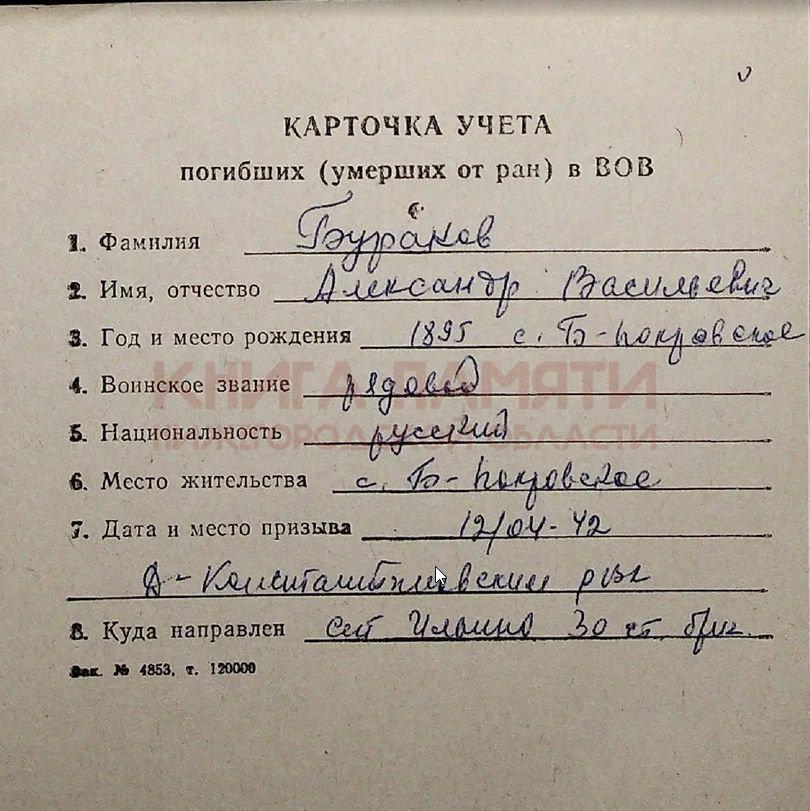 КАРТОЧКА УЧЕТА
погибших (умерших от ран) в ВОВ
1. Фамилия Бураков
2. Имя, отчество Александр Васильевич
3. Год и место рождения 1895 с. Б-Покровское
КНИГА ПАМЯТИ
4. Воинское звание рядовой
НИЖЕГОРОДСКОЙ ОБЛАСТИ
5. Национальность русский
6. Место жительства с. Б-Покровское
7. Дата и место призыва 12/04-42
Д-Константиновским рвк
8. Куда направлен Ильино 30
Зак. № 4853, т. 120000